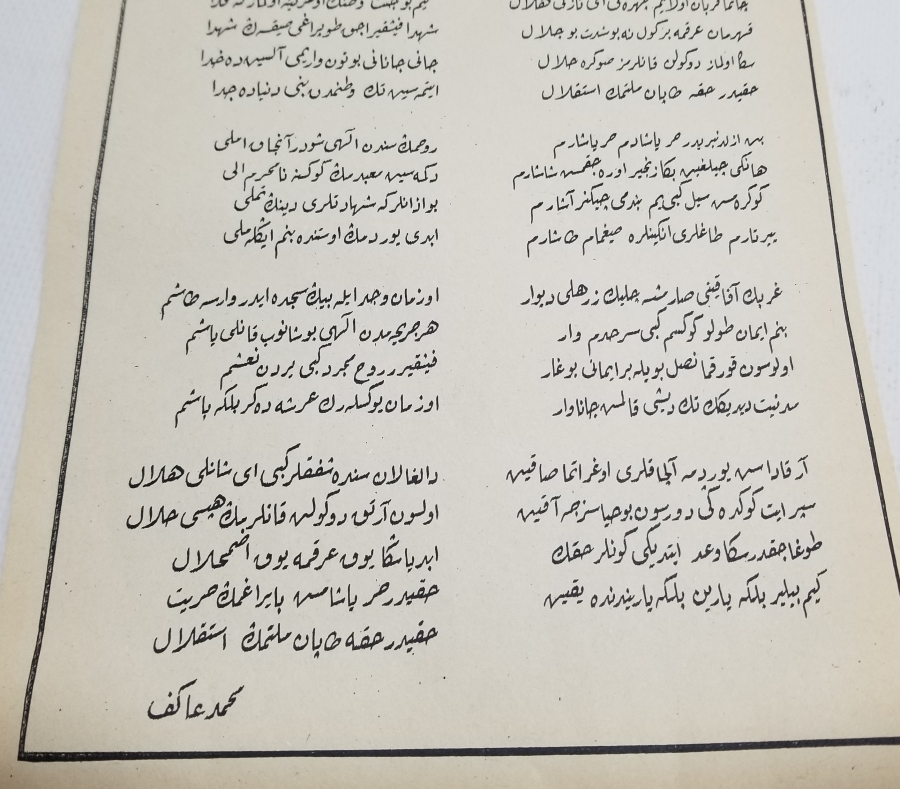 چاتما قربان اولایم چهره‌ڭی ای نازلی هلال
قهرمان عرقمه بر گول نه بو شدت بو جلال
سڭا اولماز دوكولن قانلرمز صوڭره حلال
حقیدر حقه طاپان ملتمڭ استقلال
بن ازلدنبریدر حر یاشادم حر یاشارم
هانكی چیلغین بڭا زنجیر اوره‌جقمش شاشارم
كوكره‌مش سیل كبی‌یم بندمی چیكنر آشارم
ییرتارم طاغلری انگینلره صیغمام طاشارم
غربڭ آفاقینی صارمشسه چلیك زرهلی دیوار
بنم ایمان طولو كوكسم كبی سرحدم وار
اولوسون قورقما نصل بویله بر ایمانی بوغار
مدنیت دیدیكڭ تك دیشی قالمش جاناوار
آرقاداش یوردمه آلچاقلری اوغراتما صاقین
سپر ایت كوكده‌كی دورسون بو حیاسزجه آقین
طوغاجقدر سڭا وعد ایتدیكی كونلر حقڭ
كیم بیلیر بلكه یارین بلكه یاریندنده یقین
كیم بو جنت وطنڭ اوغرینه اولماز كه فدا
شهدا فیشقیراجق طوپراغی صیقسه‌ڭ شهدا
جانی جانانی بوتون واریمی آلسین ده خدا
ایتمه‌سین تك وطنمدن بنی دنیاده جدا
روحمڭ سندن الٓهی شودر آنجاق املی
دكمه‌سین معبدمڭ كوكسنه نامحرم الی
بو اذانلر كه شهادتلری دینڭ تملی
ابدی یوردمڭ اوستنده بنم ایڭله‌ملی
او زمان وجد ایله بیڭ سجده ایدر وارسه طاشم
هر جریحه‌مدن الٓهی بوشانوب قانلی یاشم
فیشقیرر روح مجرد كبی یردن نعشم
او زمان یوكسله‌رك عرشه دكر بلكه باشم
دالغالان سنده شفقلر كبی ای شانلی هلال
اولسون آرتق دوكولن قانلرمڭ هپسی حلال
ابدیا سڭا یوق عرقمه یوق اضمحلال
حقیدر حر یاشامش بایراغمڭ حریت
حقیدر حقه طاپان ملتمڭ استقلال
محمد عاكف